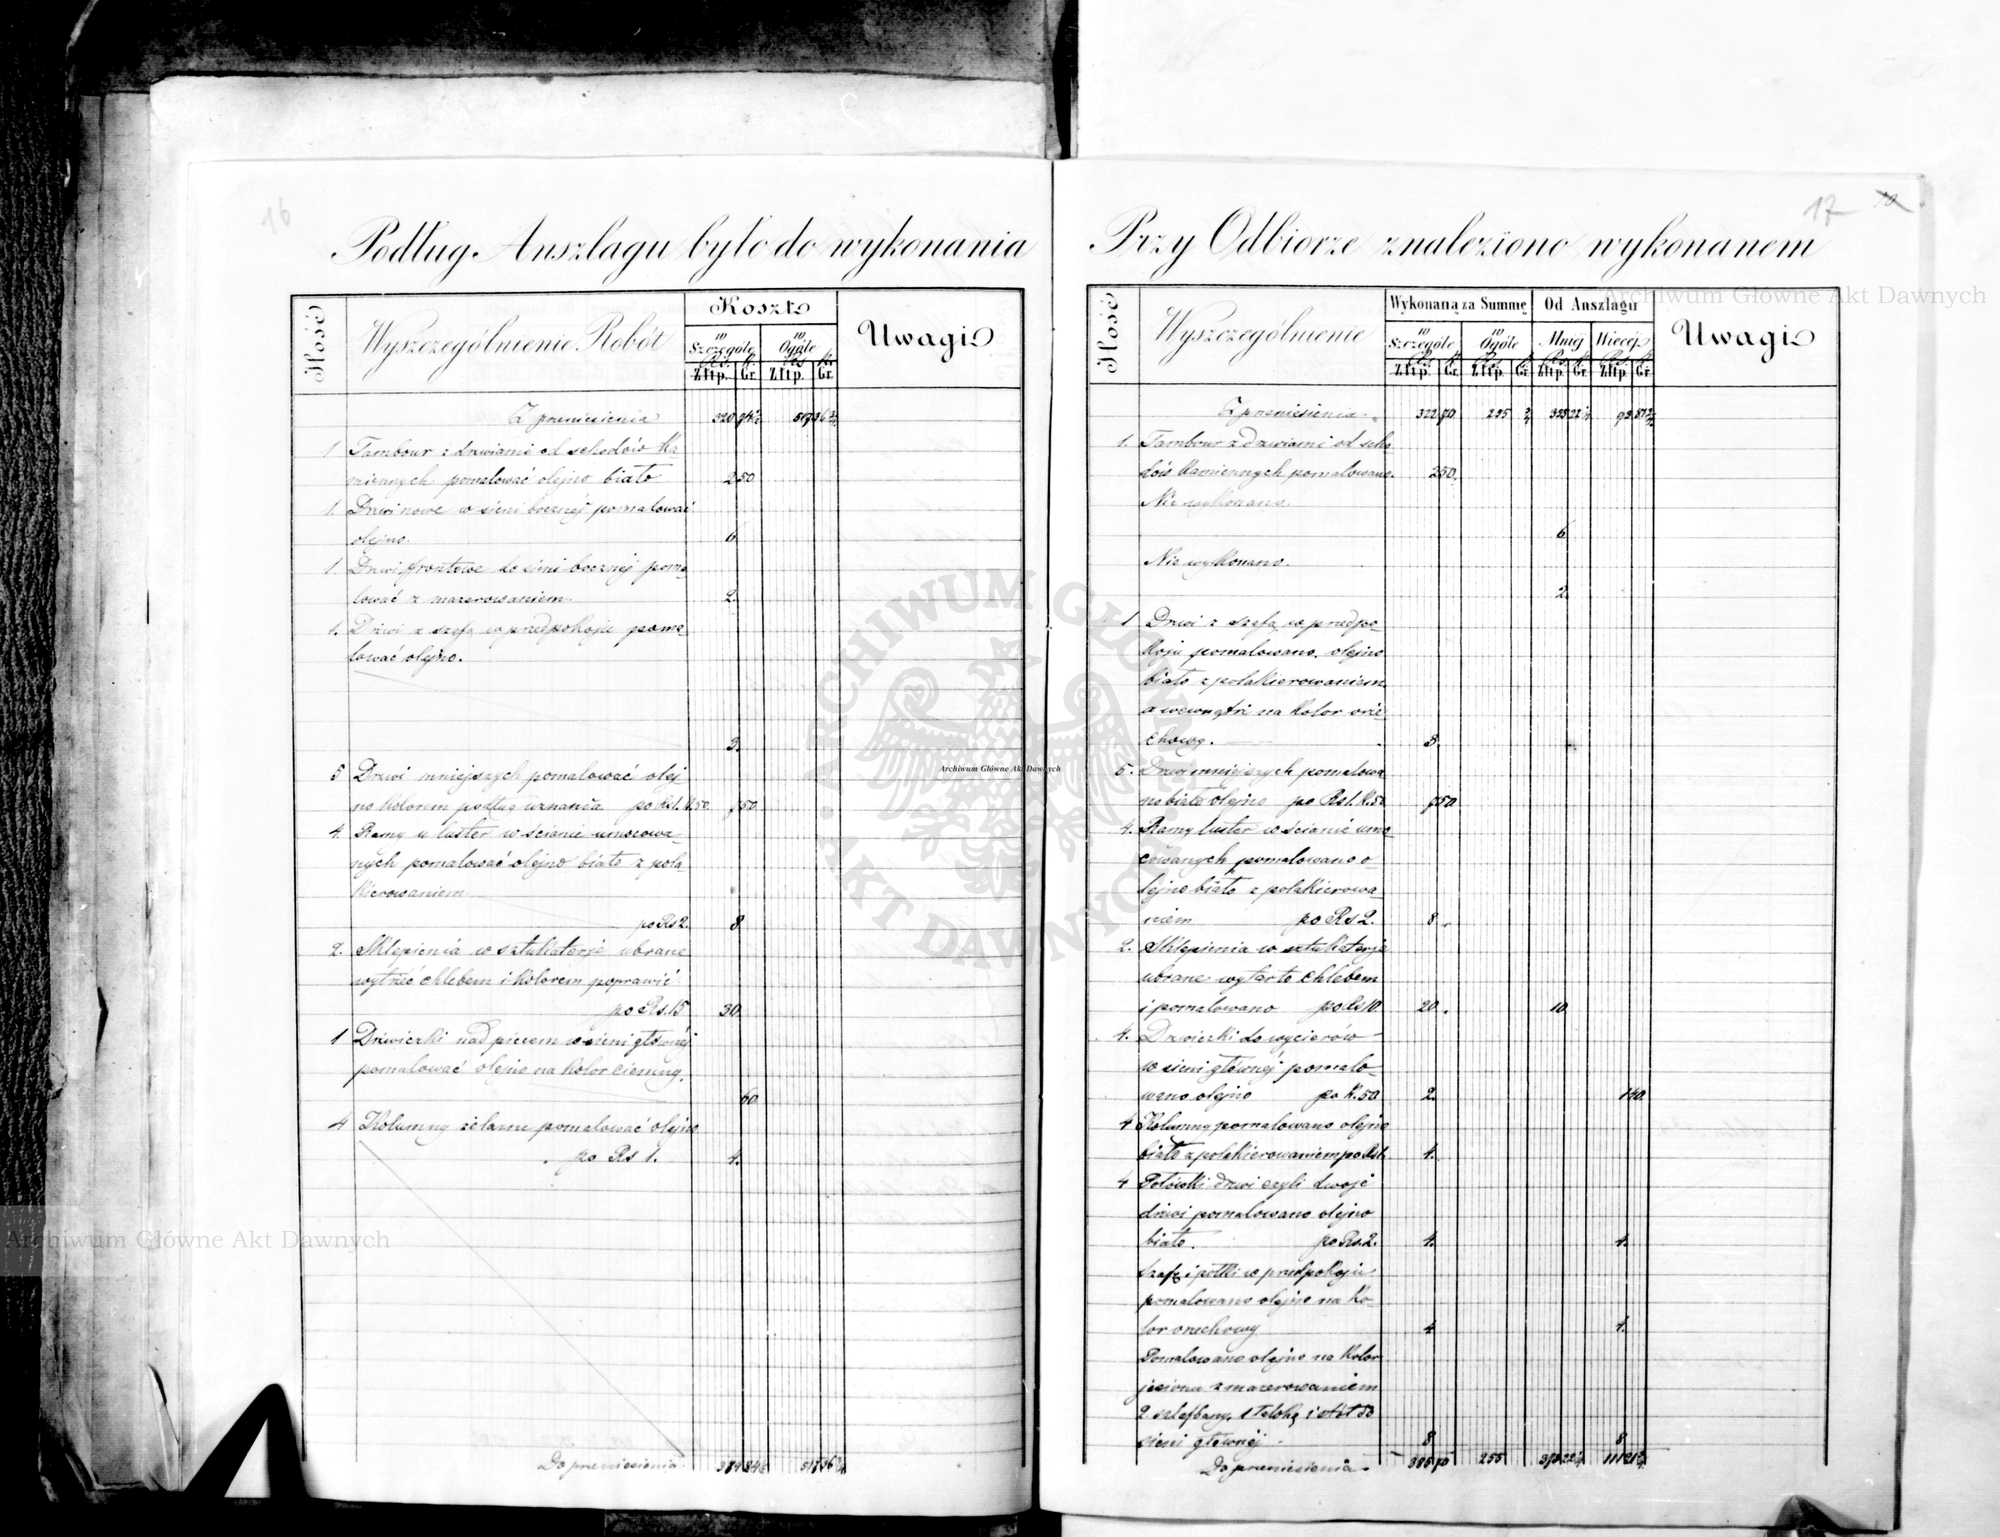 16
Podług Anszlagu było do wykonania
Ilość
Wyszczególnienie Robót
Koszt
w Szczególe
w Ogóle
Rs. K. Rs. K.
Złtp. Gr. Złtp. Gr.
Uwagi
Z przeniesienia
1 Tambour z drzwiami od schodów ka
miennych pomalować olejno biało 2 50
1. Drzwi nowe w sieni bocznej pomalować
olejno. 6
1. Drzwi frontowe do sieni bocznej poma
lować z mazerowaniem 2.
1. Drzwi z szafą w przedpokoju poma
lować olejno.
3.
5 Drzwi mniejszych pomalować olej
no kolorem podług uznania po Rs 1. K. 50. 7 50
4. Ramy u luster w ścianie umocowa
nych pomalować olejno biało z pola
kierowaniem
po Rs 2. 8
2. Sklepienia w sztukaterje ubrane
wytrzeć chlebem i kolorem poprawić
po Rs. 15 30
1 Drzwiczki nad piecem w sieni głównéj
pomalować olejno na kolor ciemny.
60
4 Kolumny żelazne pomalować olejno
po Rs 1. 4.
Do przeniesienia
17
Przy Odbiorze znaleziono wykonanem
Ilość
Wyszczególnienie
Wykonaną za Summę
Od Anszlagu
w Szczególe
w Ogóle
Mniéj
Więcéj
Rs. K. Rs. K. Rs. K. Rs. K.
Złtp. Gr. Złtp. Gr. Złtp. Gr. Złtp. Gr.
Uwagi
Z przeniesienia
1. Tambour z drzwiami od scho
dów kamiennych pomalowano. 2 50.
Nie wykonano.
6.
Nie wykonano.
2.
1 Drzwi z szafą w przedpo
koju pomalowano olejno
biało z polakierowaniem
a wewnątrz na kolor orze
chowy. 3.
5. Drzwi mniejszych pomalowa
no biało olejno po Rs 1. K. 50 7 50
4. Ramy luster w ścianie umo
cowanych pomalowano o
lejno biało z polakierowa
niem po Rs 2. 8.
2. Sklepienia w sztukaterje
ubrane wytarto chlebem
i pomalowano po Rs 10. 20. 10.
4. Drzwiczki do wycierów
w sieni głównéj pomalo
wano olejno po K. 50 2. 1 40.
4 Kolumny pomalowano olejno
biało z polakierowaniem po Rs 1. 4.
4 Połówki drzwi czyli dwoje
drzwi pomalowano olejno
biało. po Rs. 2. 4. 4.
Szafę i półki w przedpokoju
pomalowano olejno na ko
lor orzechowy 4 4.
Pomalowano olejno na kolor
jesionu z mazerowaniem
sieni głównéj. 8 8
Do przeniesienia
Archiwum Główne Akt Dawnych
Archiwum Główne Akt Dawnych
Archiwum Główne Akt Dawnych
ARCHIWUM GŁÓWNE AKT DAWNYCH